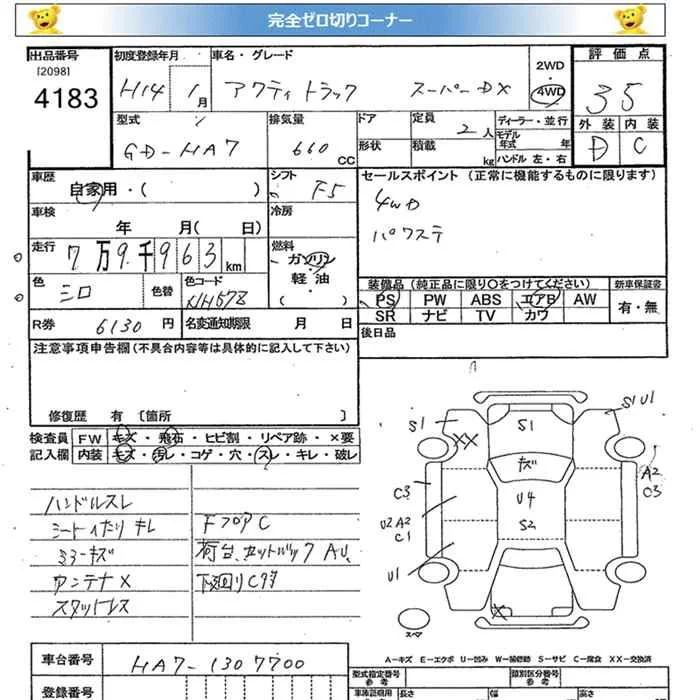 完全ゼロ切りコーナー
出品番号 初度登録年月 車名・グレード 評価点
[2098]
4183 H14年1月 アクティトラック スーパーDX 2WD・4WD 35
型式 排気量 ドア 定員 2人 ディーラー・並行 外装 内装
GD-HA7 660CC 形状 積載 kg モデル年式 年 D C
ハンドル左・右
車歴 自家用・( ) シフト F5 セールスポイント (正常に機能するものに限ります)
車検 年 月( 日) 冷房 4WD
パワステ
走行 7万9千963km 燃料 ガソリン・軽油・( )
色 シロ 色替 色コード NH578 装備品 (純正品に限り○をつけてください) 新車保証書
PS PW ABS エアB AW 有・無
SR ナビ TV カワ
R券 6130円 名変通知期限 月 日 後日品
注意事項申告欄(不具合内容等は具体的に記入して下さい)
修復歴 有 〔箇所 〕
検査員 FW キズ・飛石・ヒビ割・リペア跡・×要
記入欄 内装 キズ・汚レ・コゲ・穴・スレ・キレ・破レ
ハンドルスレ
シートイたり キレ FフロアC
ミラーキズ 荷台、セットバックAU、
アンテナX 下廻りCサビ
スタットレス
S1 S1 S1 U1
XX
キズ A2
C3 C3
U4
U2 A2 S2
C1
U1
X
スペア
A-キズ E-エクボ U-凹み W-補修跡 S-サビ C-腐食 XX-交換済
車台番号 HA7-1307700 型式指定番号 参考 類別区分番号 参考
登録番号 車検証明用 参考 長さ 幅 高さ